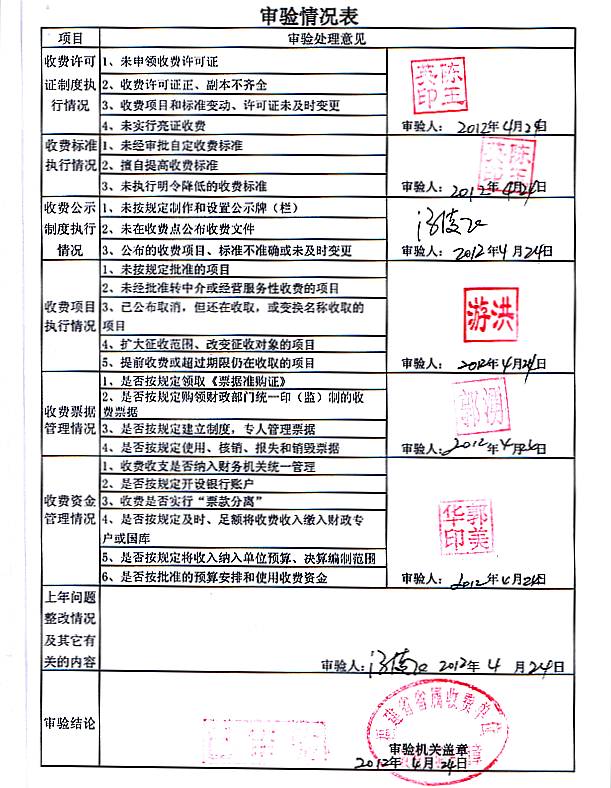 审验情况表
项目 审验处理意见
收费许可证制度执行情况
1、未申领收费许可证
2、收费许可证正、副本不齐全
3、收费项目和标准变动、许可证未及时变更
4、未实行亮证收费
陈玉英印
审验人： 2012年4月24日
收费标准执行情况
1、未经审批自定收费标准
2、擅自提高收费标准
3、未执行明令降低的收费标准
陈玉英印
审验人： 2012年4月24日
收费公示制度执行情况
1、未按规定制作和设置公示牌（栏）
2、未在收费点公布收费文件
3、公布的收费项目、标准不准确或未及时变更
审验人： 2012年4月24日
收费项目执行情况
1、未按规定批准的项目
2、未经批准转中介或经营服务性收费的项目
3、已公布取消，但还在收取，或变换名称收取的
项目
4、扩大征收范围、改变征收对象的项目
5、提前收费或超过期限仍在收取的项目
游洪
审验人： 2012年4月24日
收费票据管理情况
1、是否按规定领取《票据准购证》
2、是否按规定购领财政部门统一印（监）制的收
费票据
3、是否按规定建立制度，专人管理票据
4、是否按规定使用、核销、报失和销毁票据
郭湧
审验人： 2012年4月 日
收费资金管理情况
1、收费收支是否纳入财务机关统一管理
2、是否按规定开设银行账户
3、收费是否实行“票款分离”
4、是否按规定及时、足额将收费收入缴入财政专
户或国库
5、是否按规定将收入纳入单位预算、决算编制范围
6、是否按批准的预算安排和使用收费资金
郭美华印
审验人： 2012年4月24日
上年问题整改情况及其它有关的内容
审验人： 2012年4月24日
审验结论
福建省省属收费单位
审验机关盖章
2012年4月24日